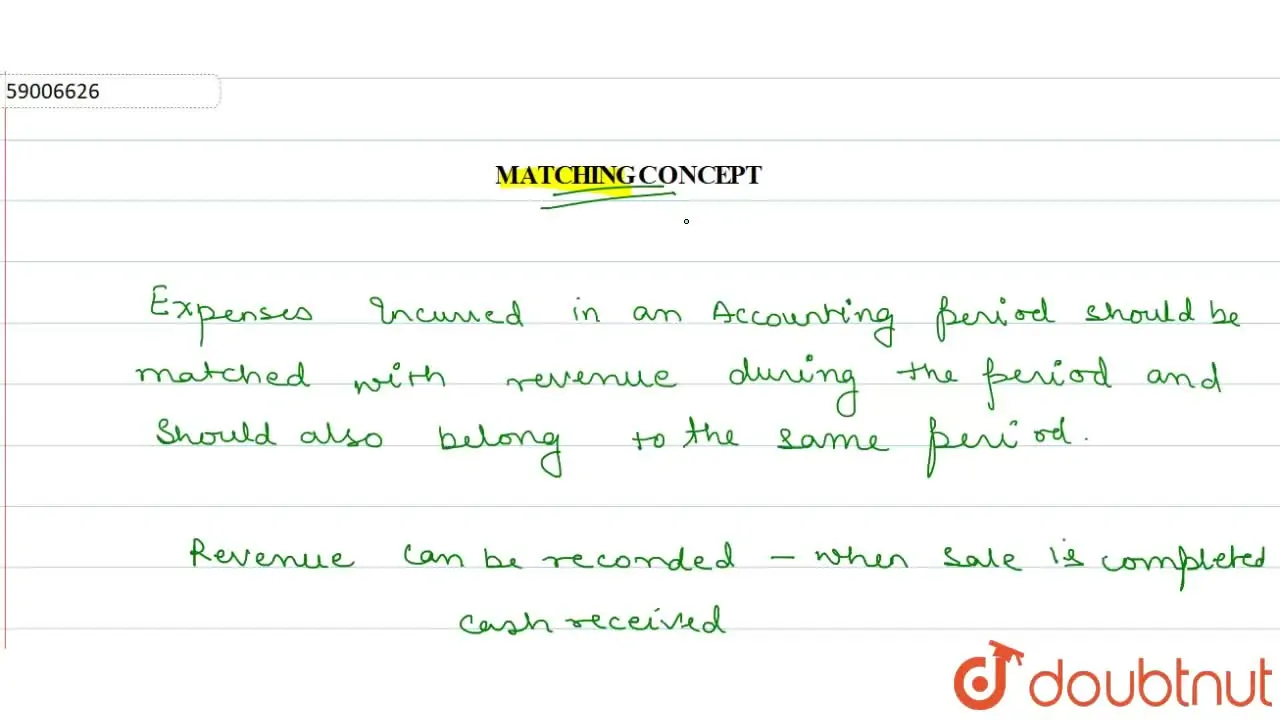 59006626
MATCHING CONCEPT
Expenses Incurred in an Accounting period should be
matched with revenue during the period and
should also belong to the same period.
Revenue can be recorded - when sale is completed
cash received
doubtnut